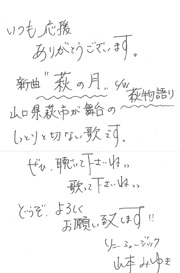 いつも応援
ありがとうございます。
新曲"萩の月" c/w 萩物語り
山口県萩市が舞台の
しっとりと切ない歌です。
ぜひ、聴いて下さいね。
歌って下さいね。
どうぞ、よろしく
お願い致します!!
ソニーミュージック
山本みゆき